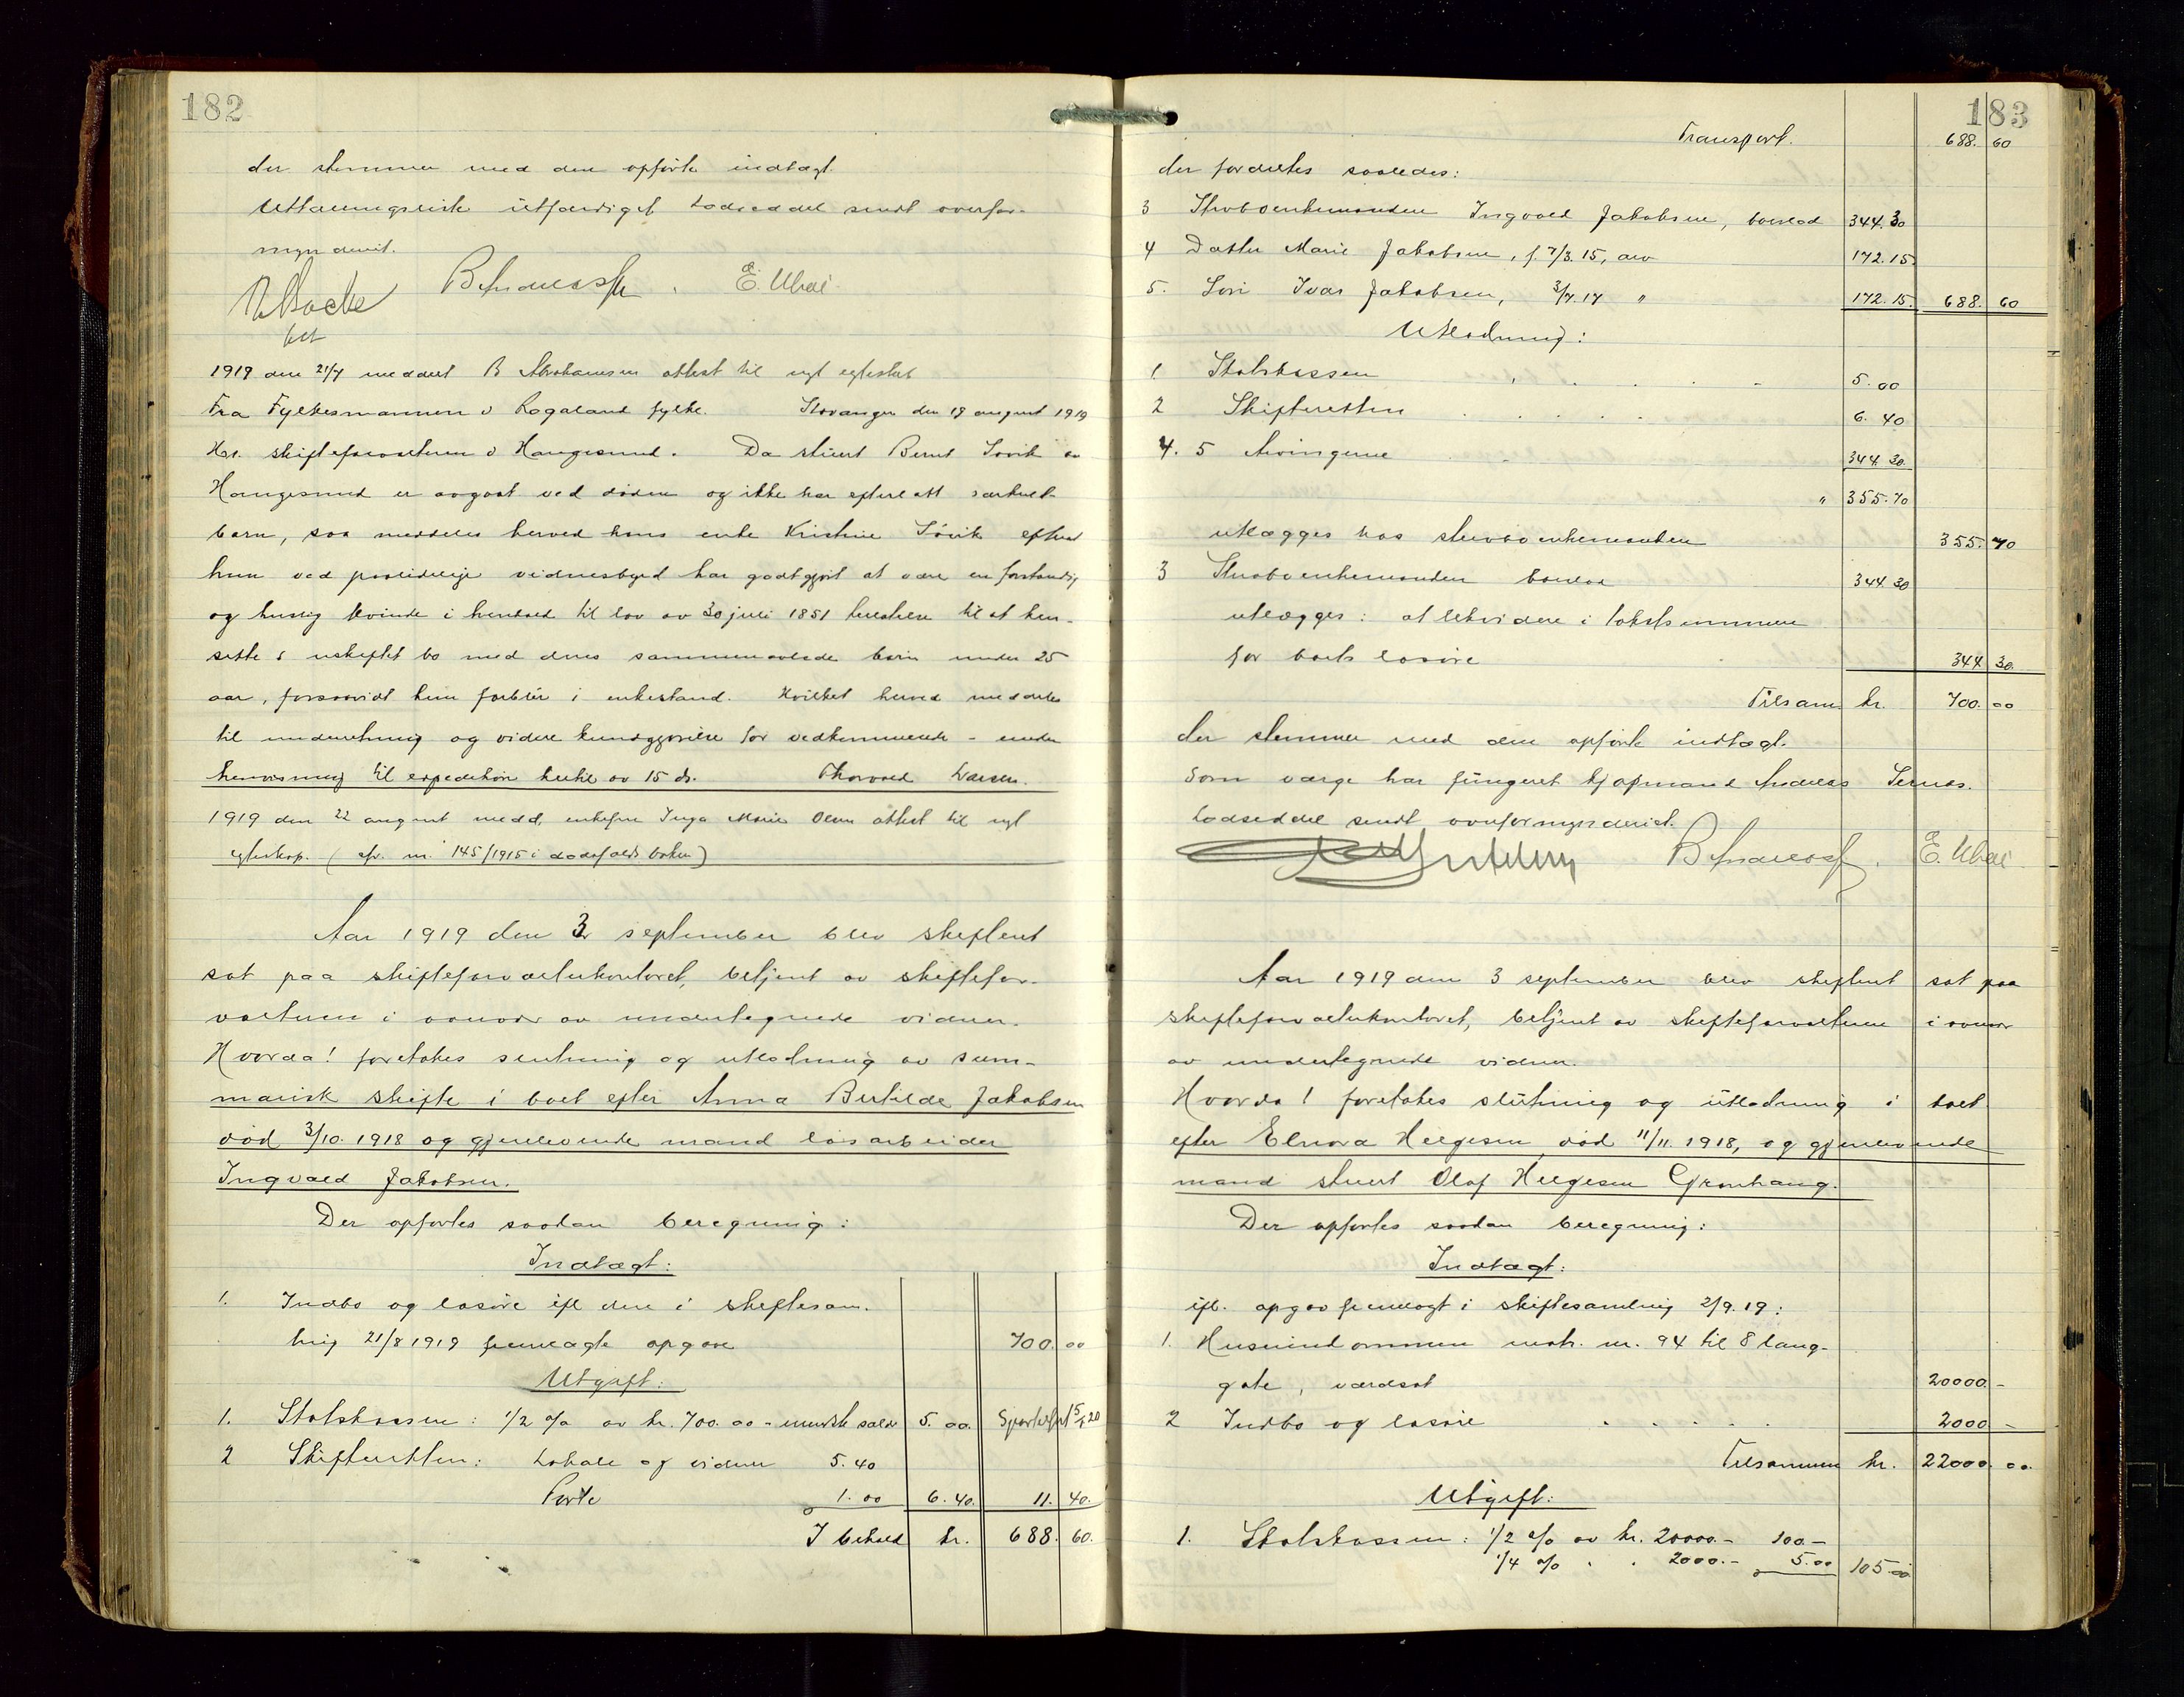 182
der stemmer med den opførte indtægt.
Utlæggsskifte utfærdiget. Lodseddel sendt overfor-
mynderiet.
B Andreassen. E. Uhde
1919 den 21/7 meddelt B Abrahamsen attest til nyt egteskab
Fra Fylkesmannen i Rogaland fylke. Stavanger den 19 august 1919
Hr. skifteforvalteren i Haugesund. Da stuert Bernt Søvik av
Haugesund er avgaat ved døden og ikke har efterlatt særkuld-
barn, saa meddeles herved hans enke Kristine Søvik efterat
hun ved paalidelige vidnesbyrd har godtgjort at være en forstandig
og huslig kvinde i henhold til lov av 30 juli 1851 tilladelse til at hen-
sitte i uskiftet bo med deres sammenavlede børn under 25
aar, forsaavidt hun forblir i enkestand. Hvilket herved meddeles
til underretning og videre kundgjørelse for vedkommende – under
henvisning til expedition hertil av 15 ds. Thorvald Larsen.
1919 den 22 august medd. enkefru Inga Marie Olsen attest til nyt
egteskap. (cfr. nr. 145/1915 i dødsfaldsboken)
Aar 1919 den 3 september blev skifteret
sat paa skifteforvalterkontoret, betjent av skiftefor-
valteren i overvær av undertegnede vidner.
Hvorda! foretokes slutning og utlodning av sum-
marisk skifte i boet efter Anna Bertilde Jakobsen
død 3/10. 1918 og gjenlevende mand løsarbeider
Ingvald Jakobsen.
Der opførtes saadan beregning:
Indtægt:
1. Indbo og løsøre ifl den i skiftesam-
ling 21/8 1919 fremlagte opgave 700. 00
Utgift:
1. Statskassen: 1/2 o/o av kr. 700.00 – mindste sats 5.00. Sportelført 5/5 20
2 Skifteretten: Lokale og vidner 5.40
Porto 1.00 6.40. 11. 40.
I behold kr. 688. 60.
183
Transport. 688. 60
der fordeltes saaledes:
3 Stervboenkemanden Ingvald Jakobsen, boeslod 344.30
4 Datter Marie Jakobsen, f. 7/3. 15, arv 172.15
5. Søn Ivar Jakobsen, 3/7.17 " 172.15. 688. 60
Utlodning:
1. Statskassen 5.00
2 Skifteretten 6.40
4. 5 Arvingerne 344.30.
" 355.70
utlægges hos stervboenkemanden 355. 70
3 Stervboenkemanden boeslod 344.30
utlægges: at likvidere i takstsummen
for boets løsøre 344 30.
Tilsam kr. 700. 00
der stemmer med den opførte indtægt.
Som værge har fungeret kjøpmand Andreas Sernes.
Lodseddel sendt overformynderiet.
B Andreassen. E. Uhde
Aar 1919 den 3 september blev skifteret sat paa
skifteforvalterkontoret, betjent av skifteforvalteren i overvær
av undertegnede vidner.
Hvorda! foretokes slutning og utlodning i boet
efter Elnora Helgesen død 11/11. 1918, og gjenlevende
mand stuert Olaf Helgesen Grønhaug.
Der opførtes saadan beregning:
Indtægt:
ifl. opgav fremlagt i skiftesamling 2/9. 19:
1. Huseiendommen matr. nr. 94 til 8 lang-
gate, værdsat 20000. –
2 Indbo og løsøre 2000 –
Tilsammen kr. 22000. 00.
Utgift:
1. Statskassen: 1/2 o/o av kr. 20000.– 100.–
1/4 o/o " " 2000.– 5.00 105.00